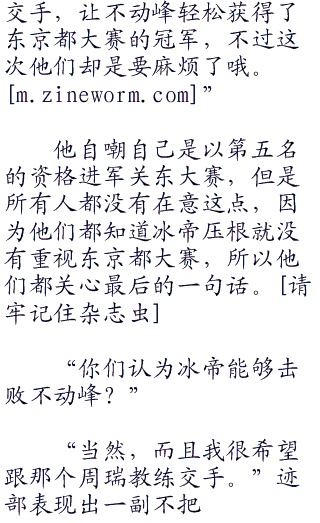 交手，让不动峰轻松获得了
东京都大赛的冠军，不过这
次他们却是要麻烦了哦。
[m.zineworm.com]”
他自嘲自己是以第五名
的资格进军关东大赛，但是
所有人都没有在意这点，因
为他们都知道冰帝压根就没
有重视东京都大赛，所以他
们都关心最后的一句话。[请
牢记住杂志虫]
“你们认为冰帝能够击
败不动峰？”
“当然，而且我很希望
跟那个周瑞教练交手。”迹
部表现出一副不把